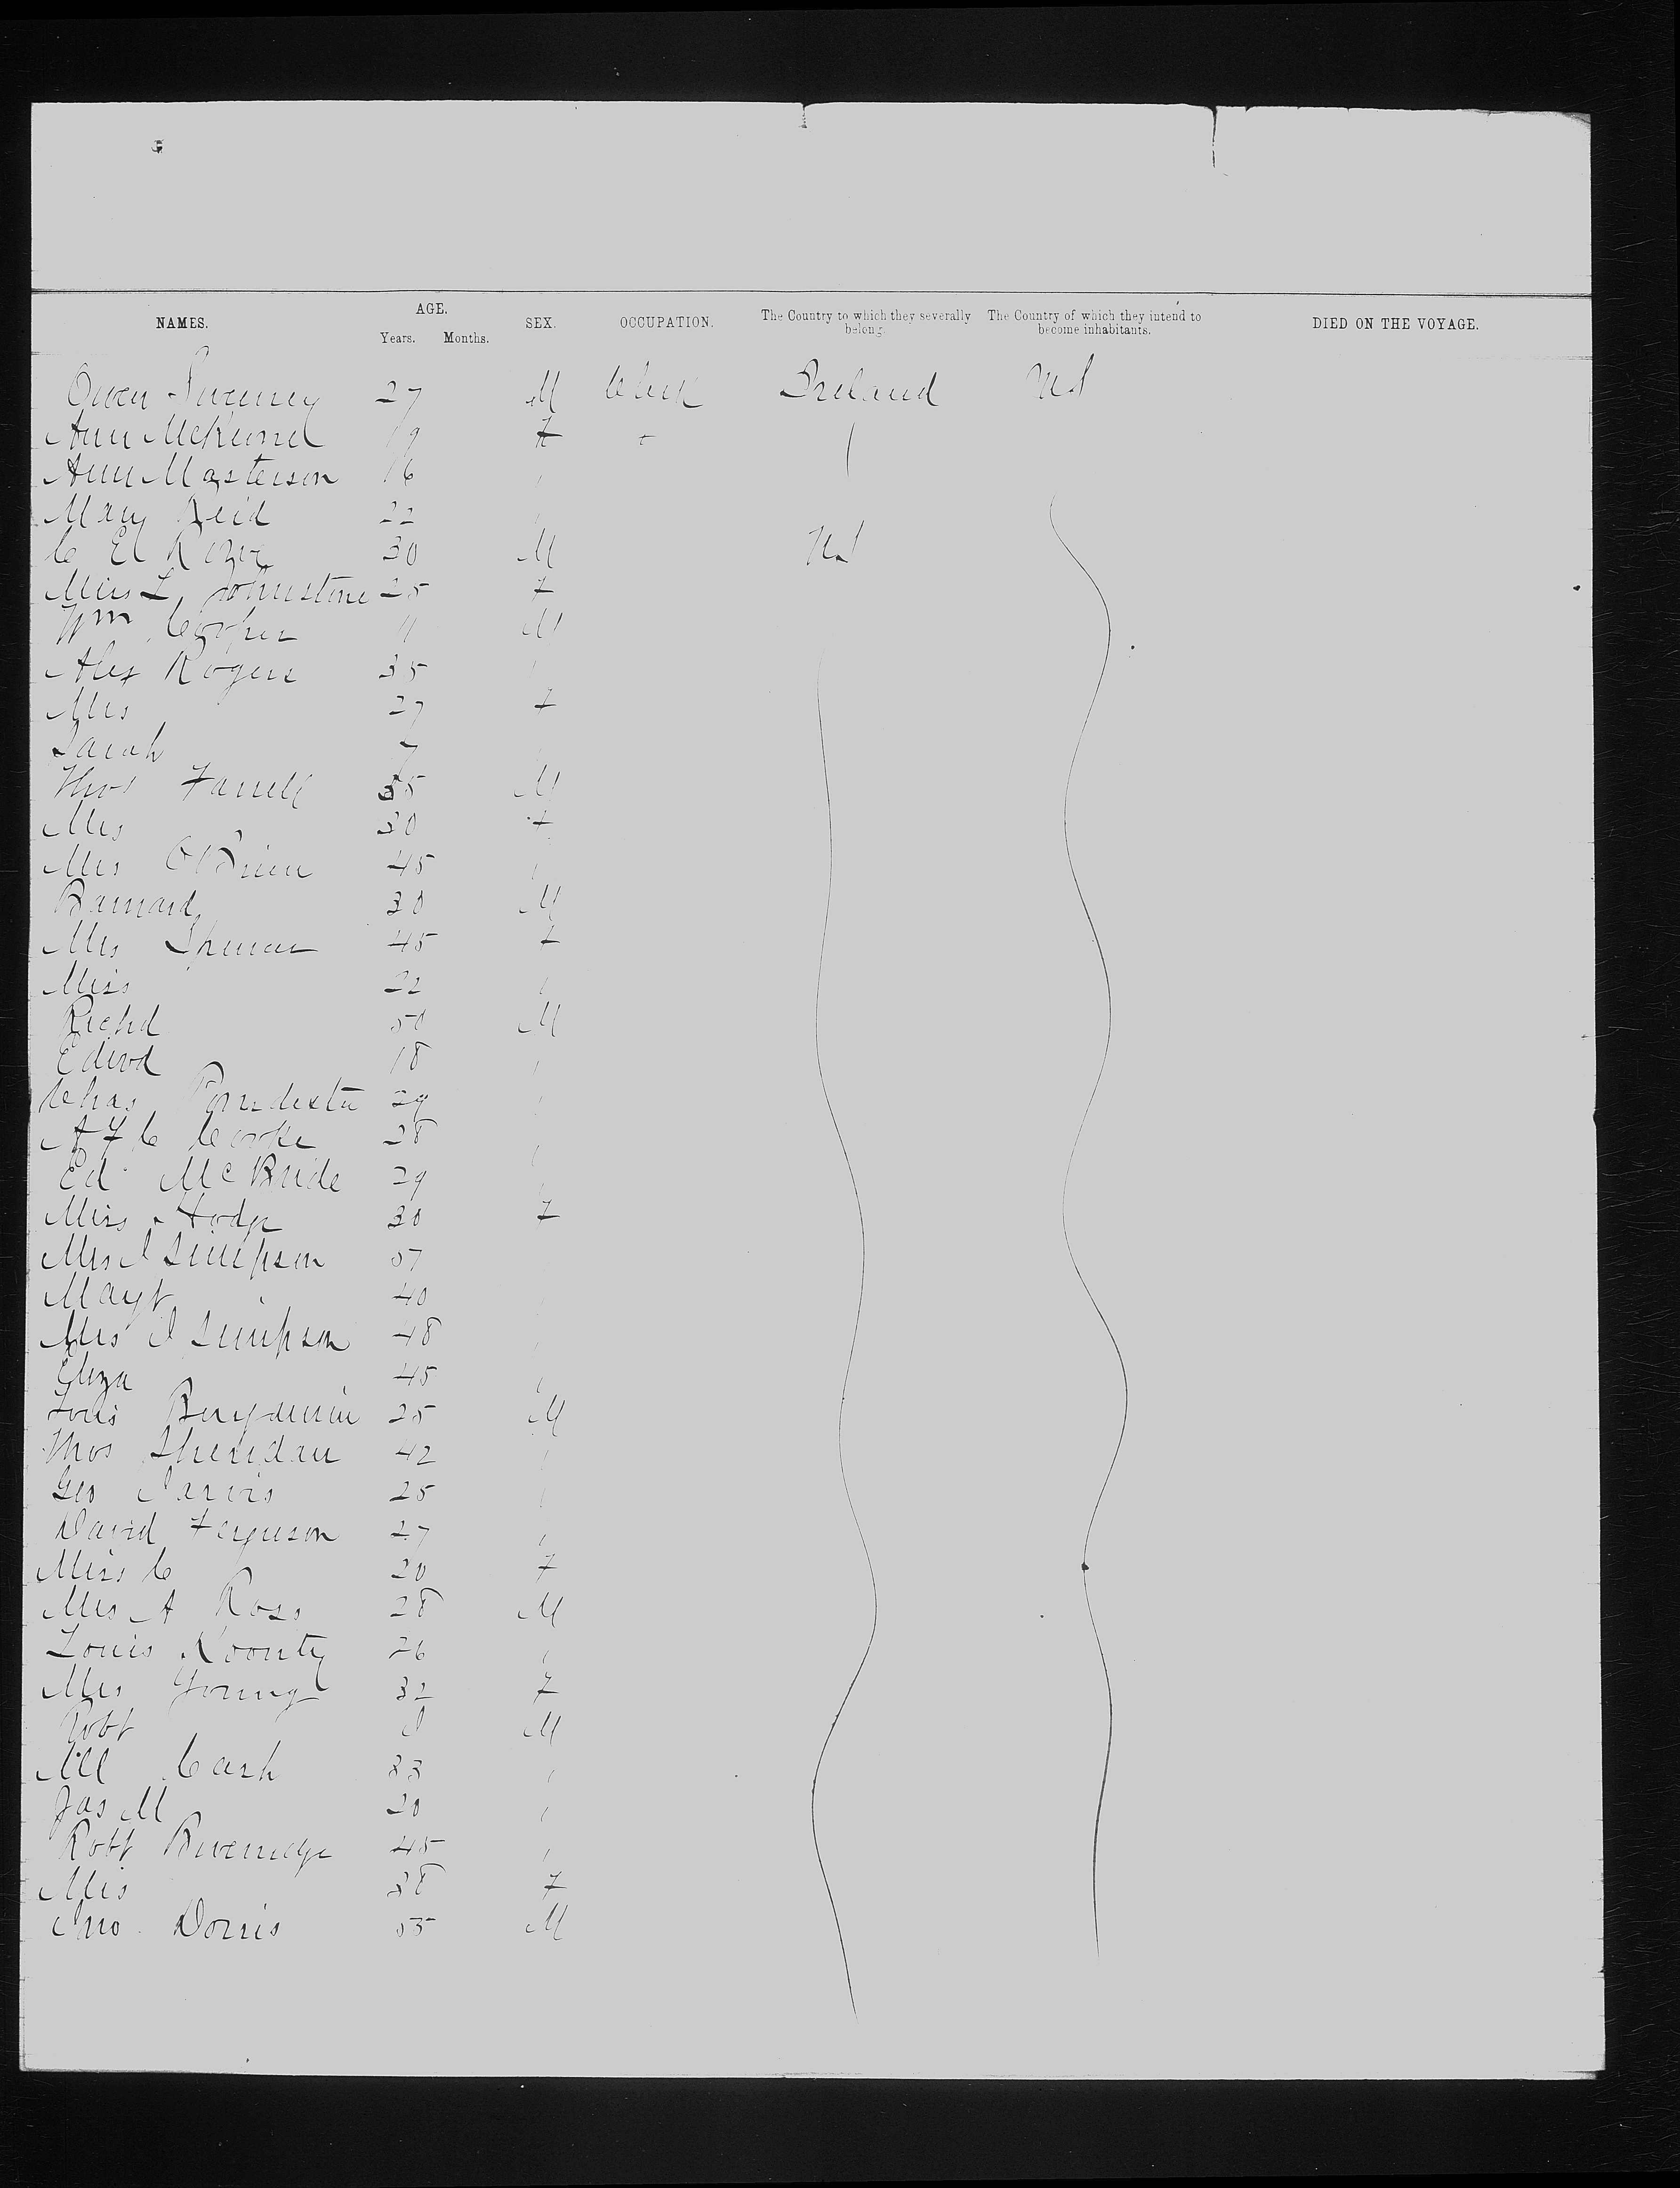 AGE.
NAMES. Years. Months. SEX. OCCUPATION. The Country to which they severally belong. The Country of which they intend to become inhabitants. DIED ON THE VOYAGE.
Owen Sweeney 27 M Clerk Ireland US
Ann 19 F +
Ann Masterson 16 "
Mary Reid 22 "
C El 30 M US
Miss L Johnstone 25 F
Wm Cooper 11 M
Alex Rogers 35 "
Mrs 27 F
Sarah 7 "
Thos Farrell 35 M
Mrs 30 F
Mrs O'Brien 45 "
Barnard 30 M
Mrs Spencer 45 F
Miss 22 "
Richd 50 M
Edwd 18 "
Chas Poindexter 29 "
A F C Cooke 28 "
Ed McBride 29 "
Miss Hodge 30 F
Mrs J Simpson 57 "
Magt 40 "
Mrs J Simpson 48 "
Eliza 45 "
Louis Benjamin 25 M
Thos Sheridan 42 "
Geo Jarvis 25 "
David Ferguson 27 "
Miss C 20 F
Mrs A Ross 28 M
Louis Koontz 26 "
Mrs Young 32 F
Robt M
Cash 33 "
Jas M 20 "
Robt Beveridge 45 "
Mrs 38 F
Jno. Dorris 55 M